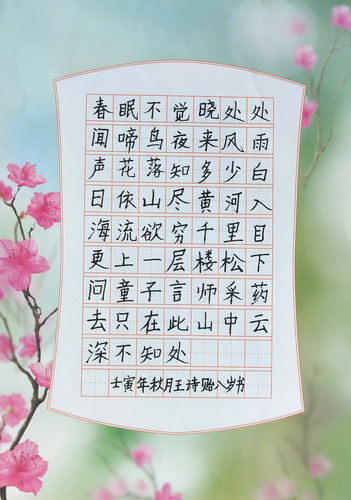 春眠不觉晓处处
闻啼鸟夜来风雨
声花落知多少白
日依山尽黄河入
海流欲穷千里目
更上一层楼松下
问童子言师采药
去只在此山中云
深不知处
壬寅年秋月王诗贻八岁书